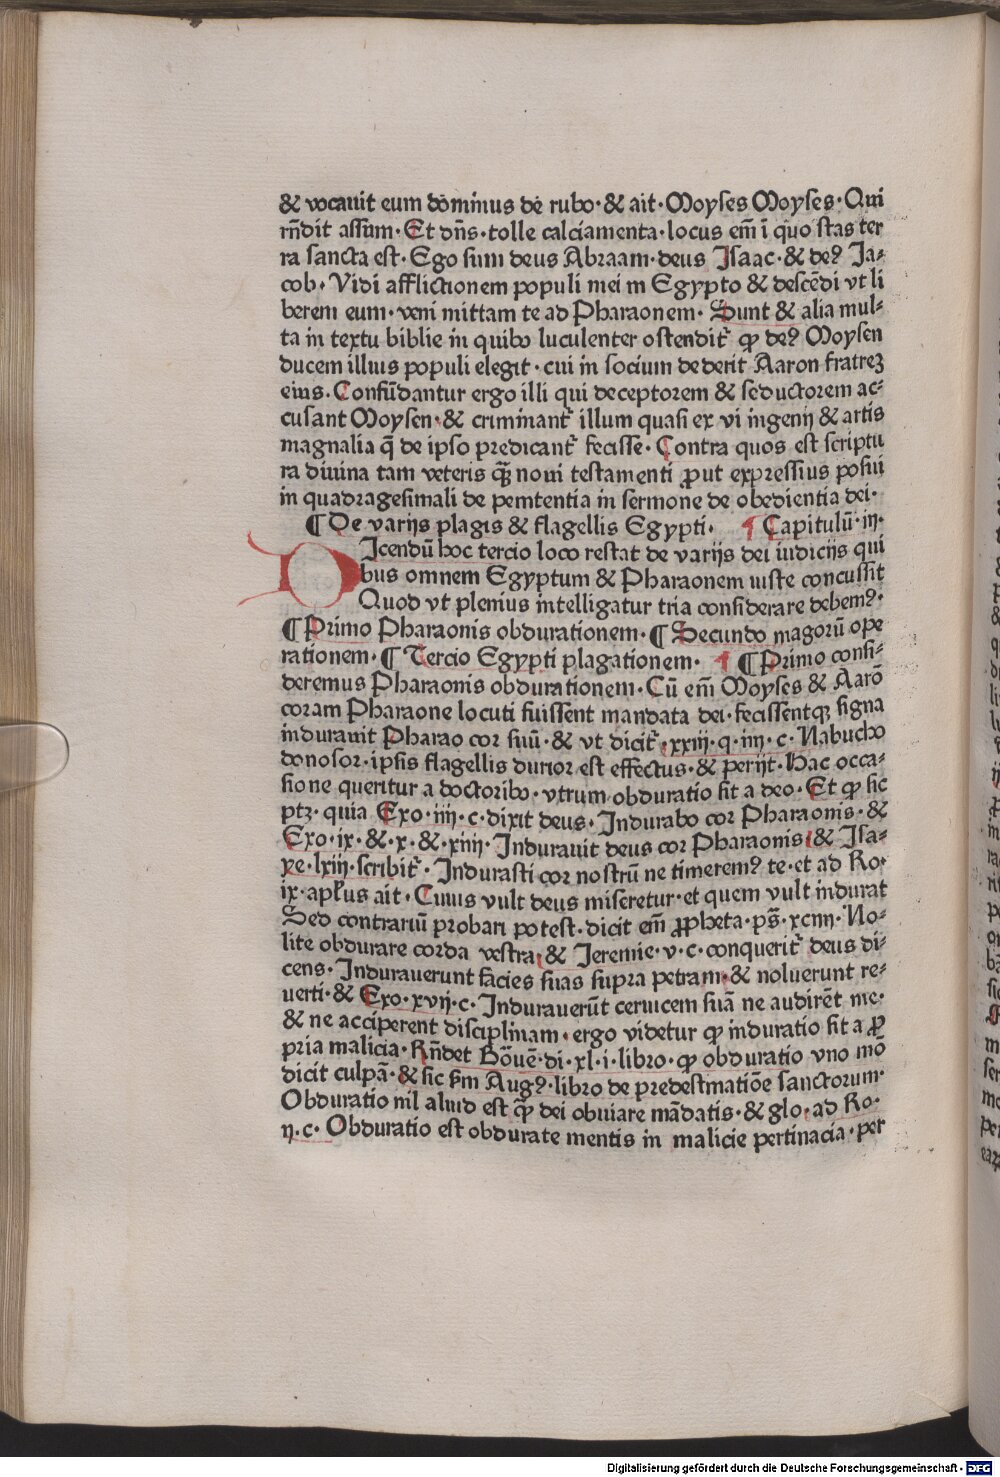 & vocauit eum dominus de rubo· & ait· Moyses Moyses· Qui
rn̄dit assum· Et dn̄s· tolle calciamenta· locus em̄ ī quo stas ter
ra sancta est· Ego sum deus Abraam· deus Isaac· & deꝰ Ja⸗
cob· Vidi afflictionem populi mei in Egypto & descēdi vt li
berem eum· veni mittam te ad Pharaonem· Sunt & alia mul⸗
ta in textu biblie in quibo luculenter ostendit᷑ ꝙ deꝰ Moysen
ducem illius populi elegit· cui in socium dederit Aaron fratreꝫ
eius· Confūdantur ergo illi qui deceptorem & seductorem ac⸗
cusant Moysen· & criminant᷑ illum quasi ex vi ingenij & artis
magnalia q̄ de ipso predicant᷑ fecisse· Contra quos est scriptu
ra diuina tam veteris q̄ꝫ noui testamenti ꝓut expressius posui
in quadragesimali de penitentia in sermone de obedientia dei·
¶ De varijs plagis & flagellis Egypti· ¶ Capitulū· iij·
DIcendū hoc tercio loco restat de varijs dei iudicijs qui
bus omnem Egyptum & Pharaonem iuste concussit
Quod vt plenius intelligatur tria considerare debemꝰ·
¶ Primo Pharaonis obdurationem· ¶ Secundo magorū ope
rationem· ¶ Tercio Egypti plagationem· ¶ ¶ Primo consi⸗
deremus Pharaonis obdurationem· Cū em̄ Moyses & Aarō
coram Pharaone locuti fuissent mandata dei· fecissentqꝫ signa
indurauit Pharao cor suū· & vt dicit᷑· xxiij· q· iiij· c· Nabucho
donosor· ipsis flagellis durior est effectus· & perijt· Hac occa⸗
sione queritur a doctoribo· vtrum obduratio sit a deo· Et ꝙ sic
ptꝫ· quia Exo· iiij· c· dixit deus· Indurabo cor Pharaonis· &
Exo· ix· &· x· &· xiiij· Indurauit deus cor Pharaonis· & Isa⸗
ye· lxiij· scribit᷑· Indurasti cor nostrū ne timeremꝰ te· et ad Ro·
ix· apl̄us ait· Cuius vult deus miseretur· et quem vult indurat
Sed contrariū probari potest· dicit em̄ ꝓpheta· ps̄· xciiij· No⸗
lite obdurare corda vestra· & Jeremie· v· c· conquerit᷑ deus di⸗
cens· Indurauerunt facies suas supra petram· & noluerunt re⸗
uerti· & Exo· xvij· c· Indurauerūt ceruicem suā ne audirēt me·
& ne acciperent disciplinam· ergo videtur ꝙ induratio sit a ꝓ
pria malicia· Rn̄det Bōuē· di· xl· i· libro· ꝙ obduratio vno mō
dicit culpā· & sic s̄m Augꝰ· libro de predestinatiōe sanctorum·
Obduratio nil aliud est q̄ꝫ dei obuiare mādatis· & glo· ad Ro·
ij· c· Obduratio est obdurate mentis in malicie pertinacia· per
Digitalisierung gefördert durch die Deutsche Forschungsgemeinschaft - DFG